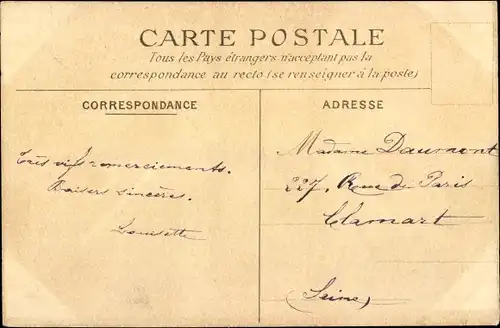 CARTE POSTALE
Tous les Pays étrangers n'acceptant pas la
correspondance au recto (se renseigner à la poste)
CORRESPONDANCE
ADRESSE
Très vifs remerciements.
Baisers sincères.
Louisette
Madame Daumont
227, Rue de Paris
Clamart
(Seine)